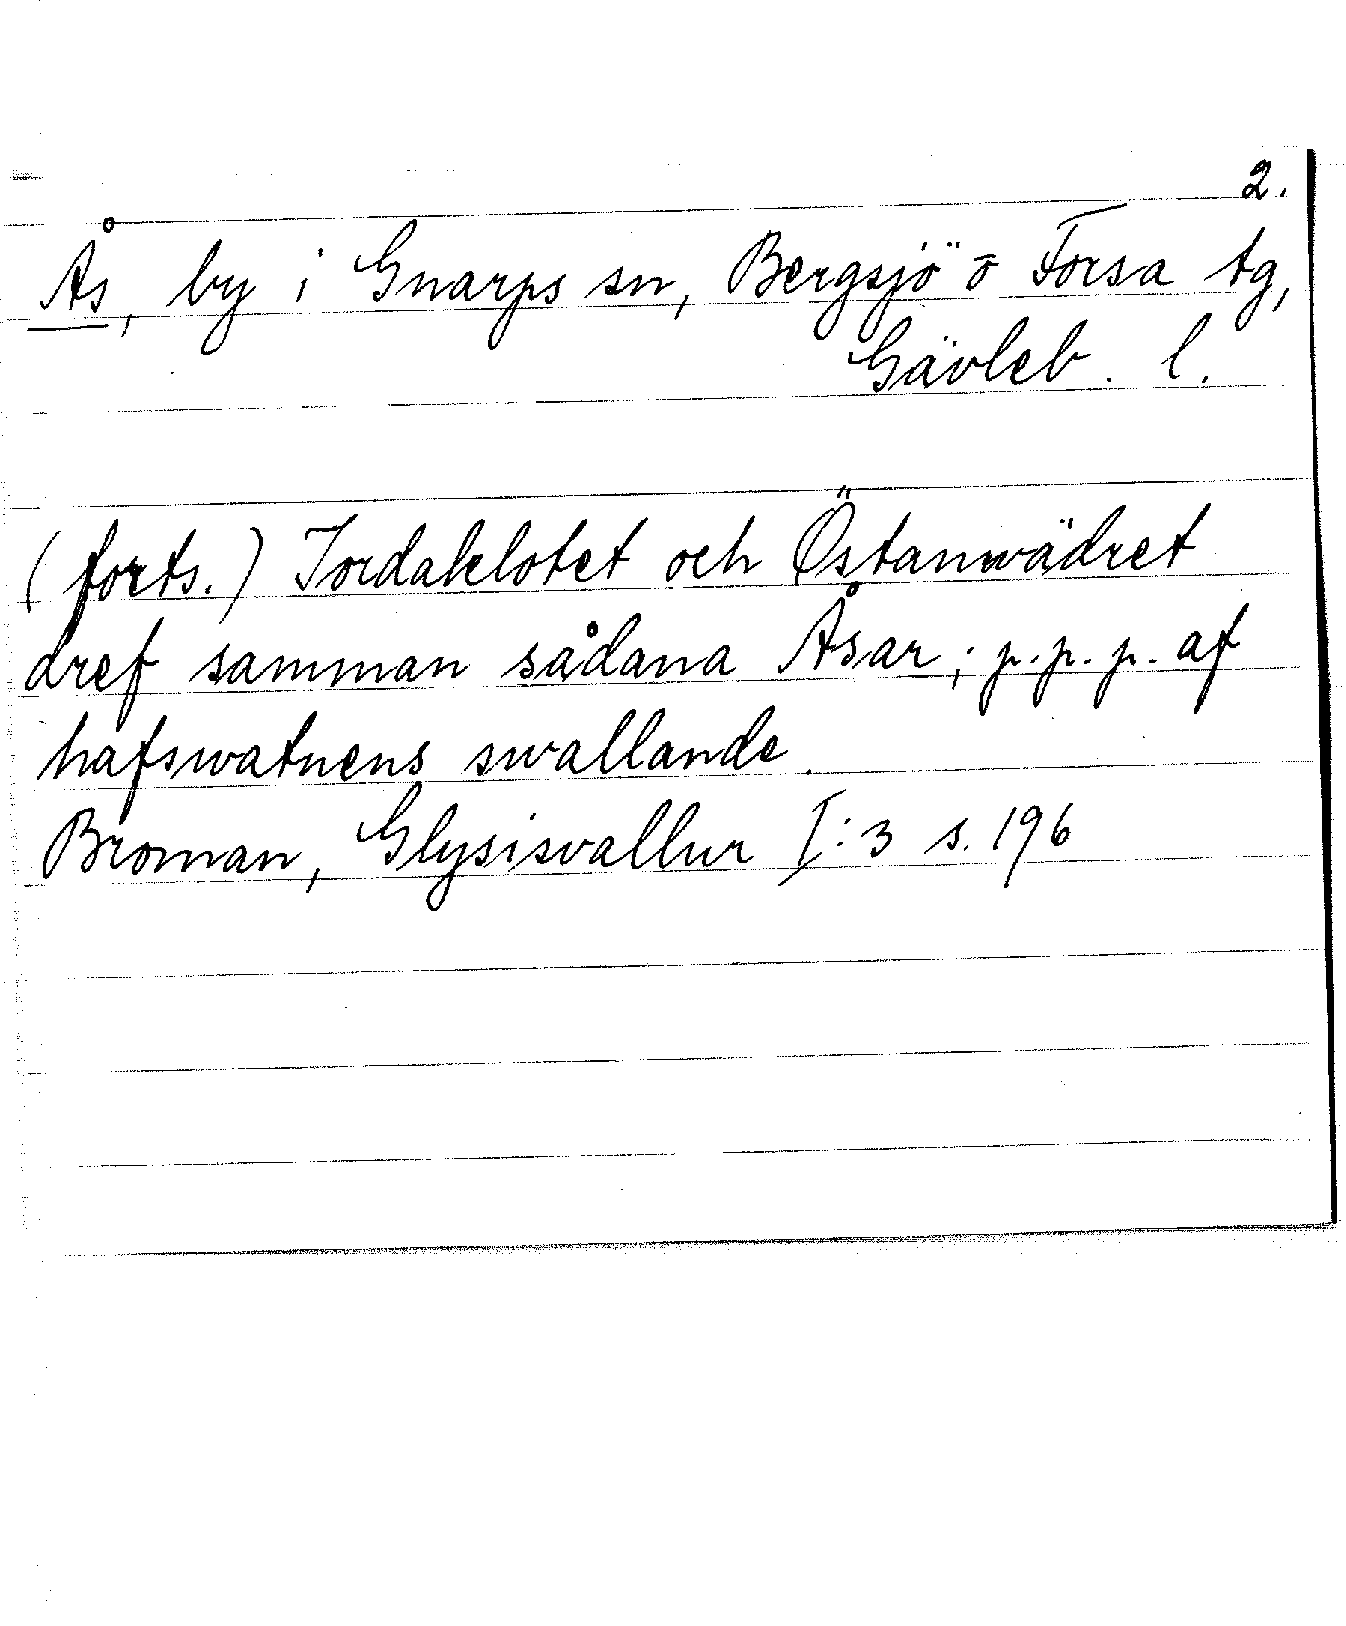 2.
Ås, by i Gnarps sn, Bergsjö o Forsa tg,
Gävleb. l.
(forts.) Jordaklotet och Östanwädret
dref samman sådana Åsar; p.p.p. af
hafswatnens swallande.
Broman, Glysisvallur I:3 s. 196